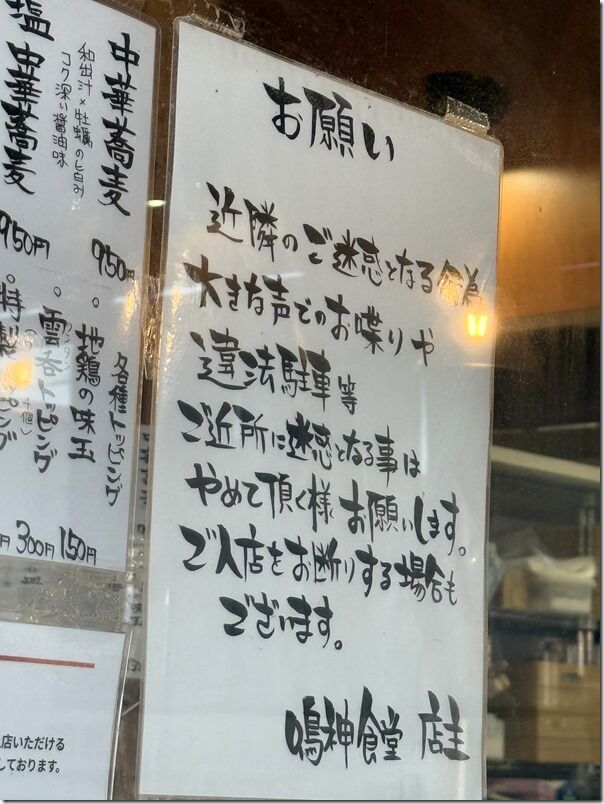 お願い
近隣のご迷惑となる行為
大きな声でのお喋りや
違法駐車等
ご近所に迷惑となる事は
やめて頂く様お願いします。
ご入店をお断りする場合も
ございます。
鳴神食堂 店主
中華蕎麦
和出汁×牡蠣の旨み
コク深い醤油味
950円
塩中華蕎麦
950円
各種トッピング
・地鶏の味玉
150円
・雲呑トッピング
300円
・特製
店いただける
しております。